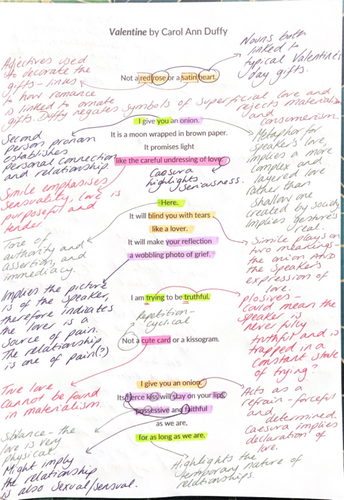 Valentine by Carol Ann Duffy
Nouns both
linked to
typical Valentine's
day gifts.
Adjectives used
to decorate the
gifts - links
to how romance
is linked to ornate
gifts. Duffy negates symbols of superficial love and
rejects materialism
and
consumerism.
Not a red rose or a satin heart.
I give you an onion.
It is a moon wrapped in brown paper.
It promises light
like the careful undressing of love.
Second
person pronoun
establishes
personal connection
and relationship.
Metaphor for
speaker's love
implies a more
complex and
layered love
rather than
shallow one
created by society
implies gestures
real.
Caesura
highlights
seriousness.
Simile emphasises
sensuality, love is
purposeful and
tender
Here.
It will blind you with tears
like a lover.
It will make your reflection
a wobbling photo of grief.
Tone of
authority and
assertion, and
immediacy.
Simile plays on
two meanings
the onion AND
the speaker's
expression of
love.
Implies the picture
is of the speaker,
therefore indicates
the lover is a
source of pain.
The relationship
is one of pain(?)
I am trying to be truthful.
Plosives -
could mean the
speaker is
never fully
truthful and is
trapped in a
constant state
of trying?
Repetition -
cyclical
Not a cute card or a kissogram.
True love
cannot be found
in materialism.
I give you an onion.
Its fierce kiss will stay on your lips,
possessive and faithful
as we are,
for as long as we are.
Acts as a
refrain - forceful
and
determined.
Caesura implies
declaration of
love.
Sibilance - the
love is very
physical.
Might imply
the relationship
is also sexual/sensual.
Highlights the
temporary nature of
relationships.